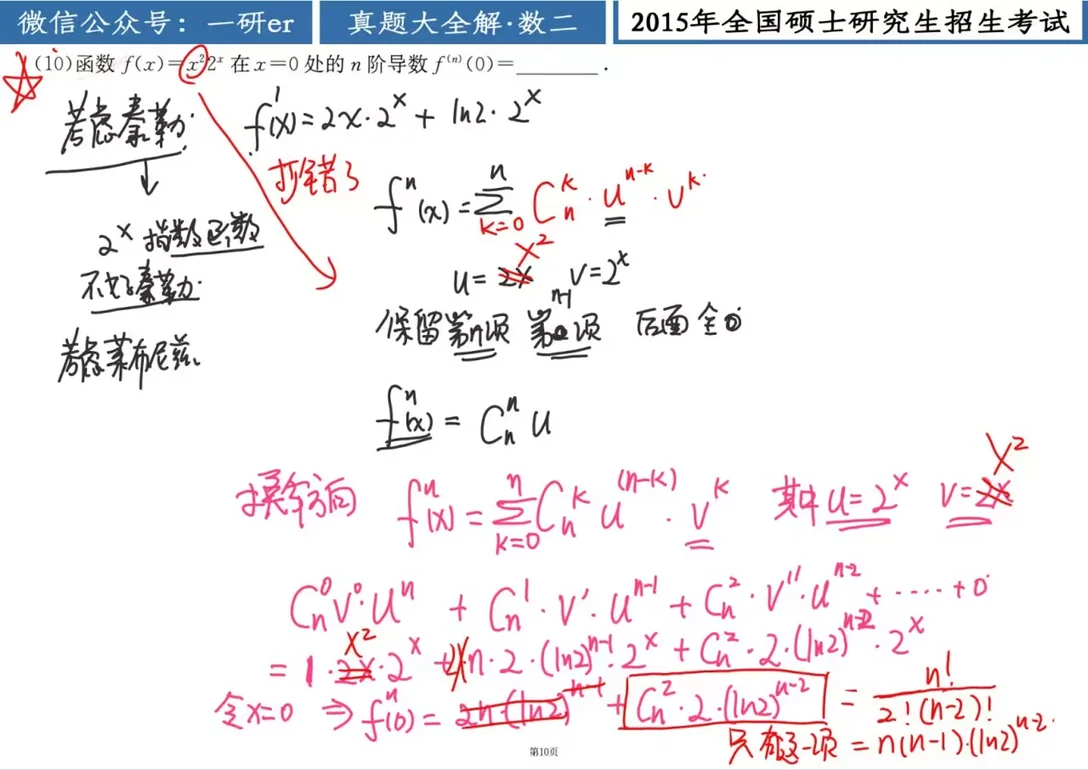 微信公众号：一研er
真题大全解·数二
2015年全国硕士研究生招生考试
(10)函数 f(x)=x²2ˣ 在 x=0 处的 n 阶导数 f⁽ⁿ⁾(0)=________.
考虑泰勒
f'(x)=2x·2ˣ + ln2·2ˣ
抄错了
fⁿ(x)=∑ⁿₖ₌₀ Cₙᵏ·uⁿ⁻ᵏ·vᵏ
2ˣ 指数函数
不好泰勒
x²
u=2x v=2ˣ
保留第n项 第n-1项 后面全0
考虑莱布尼兹
fⁿ(x) = Cₙⁿ u
x²
换个方向 fⁿ(x)=∑ⁿₖ₌₀ Cₙᵏ u⁽ⁿ⁻ᵏ⁾·vᵏ 其中 u=2ˣ v=2x
Cₙ⁰v⁰·uⁿ + Cₙ¹·v'·uⁿ⁻¹ + Cₙ²·v''·uⁿ⁻² + ····· + 0
x²
= 1·2x·2ˣ + 2x n·2·(ln2)ⁿ⁻¹·2ˣ + Cₙ²·2·(ln2)ⁿ⁻²·2ˣ
令x=0 ⇒ fⁿ(0) = 2n·(ln2)ⁿ⁻¹ + Cₙ²·2·(ln2)ⁿ⁻² = n!/2!(n-2)!
只有这一项 = n(n-1)·(ln2)ⁿ⁻²
第10页